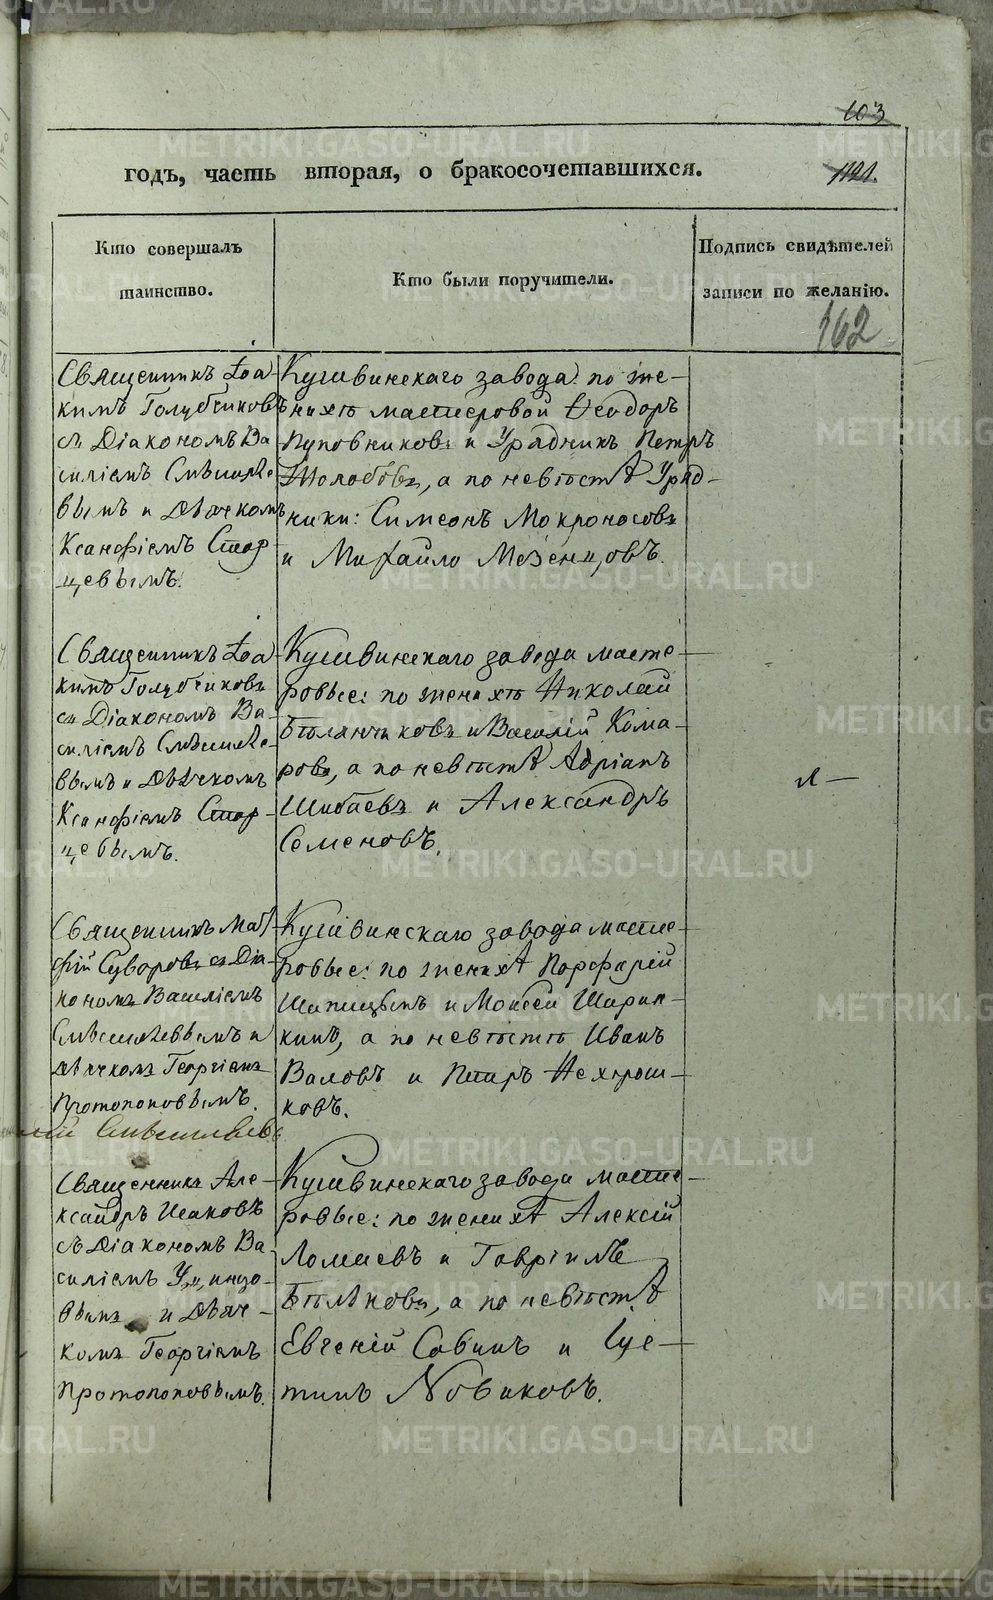 103
годъ, часть вторая, о бракосочетавшихся.
1121.
Кто совершалъ
таинство.
Кто были поручители.
Подпись свидѣтелей
записи по желанію.
162
Священникъ Іоа-
кимъ Голубчиковъ
съ Діакономъ Ва-
силіемъ
вымъ и Дьячкомъ
Ксанфіемъ Стар-
цевымъ.
Кушвинскаго завода: по же-
нихѣ мастеровой Ѳеодоръ
Пуповниковъ и Урядникъ Петръ
Жолобовъ, а по невѣстѣ Уряд-
ники: Симеонъ Мокроносовъ
и Михайло Мезенцовъ.
Священникъ Іоа-
кимъ Голубчиковъ
съ Діакономъ Ва-
силіемъ
вымъ и Дьячкомъ
Ксанфіемъ Стар-
цевымъ.
Кушвинскаго завода масте-
ровые: по женихѣ Николай
Бѣлянчиковъ и Василій Кома-
ровъ, а по невѣстѣ Адріанъ
Шибаевъ и Александръ
Семеновъ.
Священникъ Мат-
фій Суворовъ съ Діа-
кономъ Василіемъ
и
дьячкомъ Георгіемъ
Протопоповымъ.
Кушвинскаго завода масте-
ровые: по женихѣ Порфирій
Шапицынъ и Моисей Шарин-
кинъ, а по невѣстѣ Иванъ
Валовъ и Петръ Нехорош-
ковъ.
Священникъ Але-
ксандръ Исаковъ
съ Діакономъ Ва-
силіемъ
вымъ и Дьяч-
комъ Георгіемъ
Протопоповымъ.
Кушвинскаго завода масте-
ровые: по женихѣ Алексій
Ломаевъ и Гавріилъ
Бѣляковъ, а по невѣстѣ
Евгеній Савинъ и Іус-
тинъ Новиковъ.
METRIKI.GASO-URAL.RU